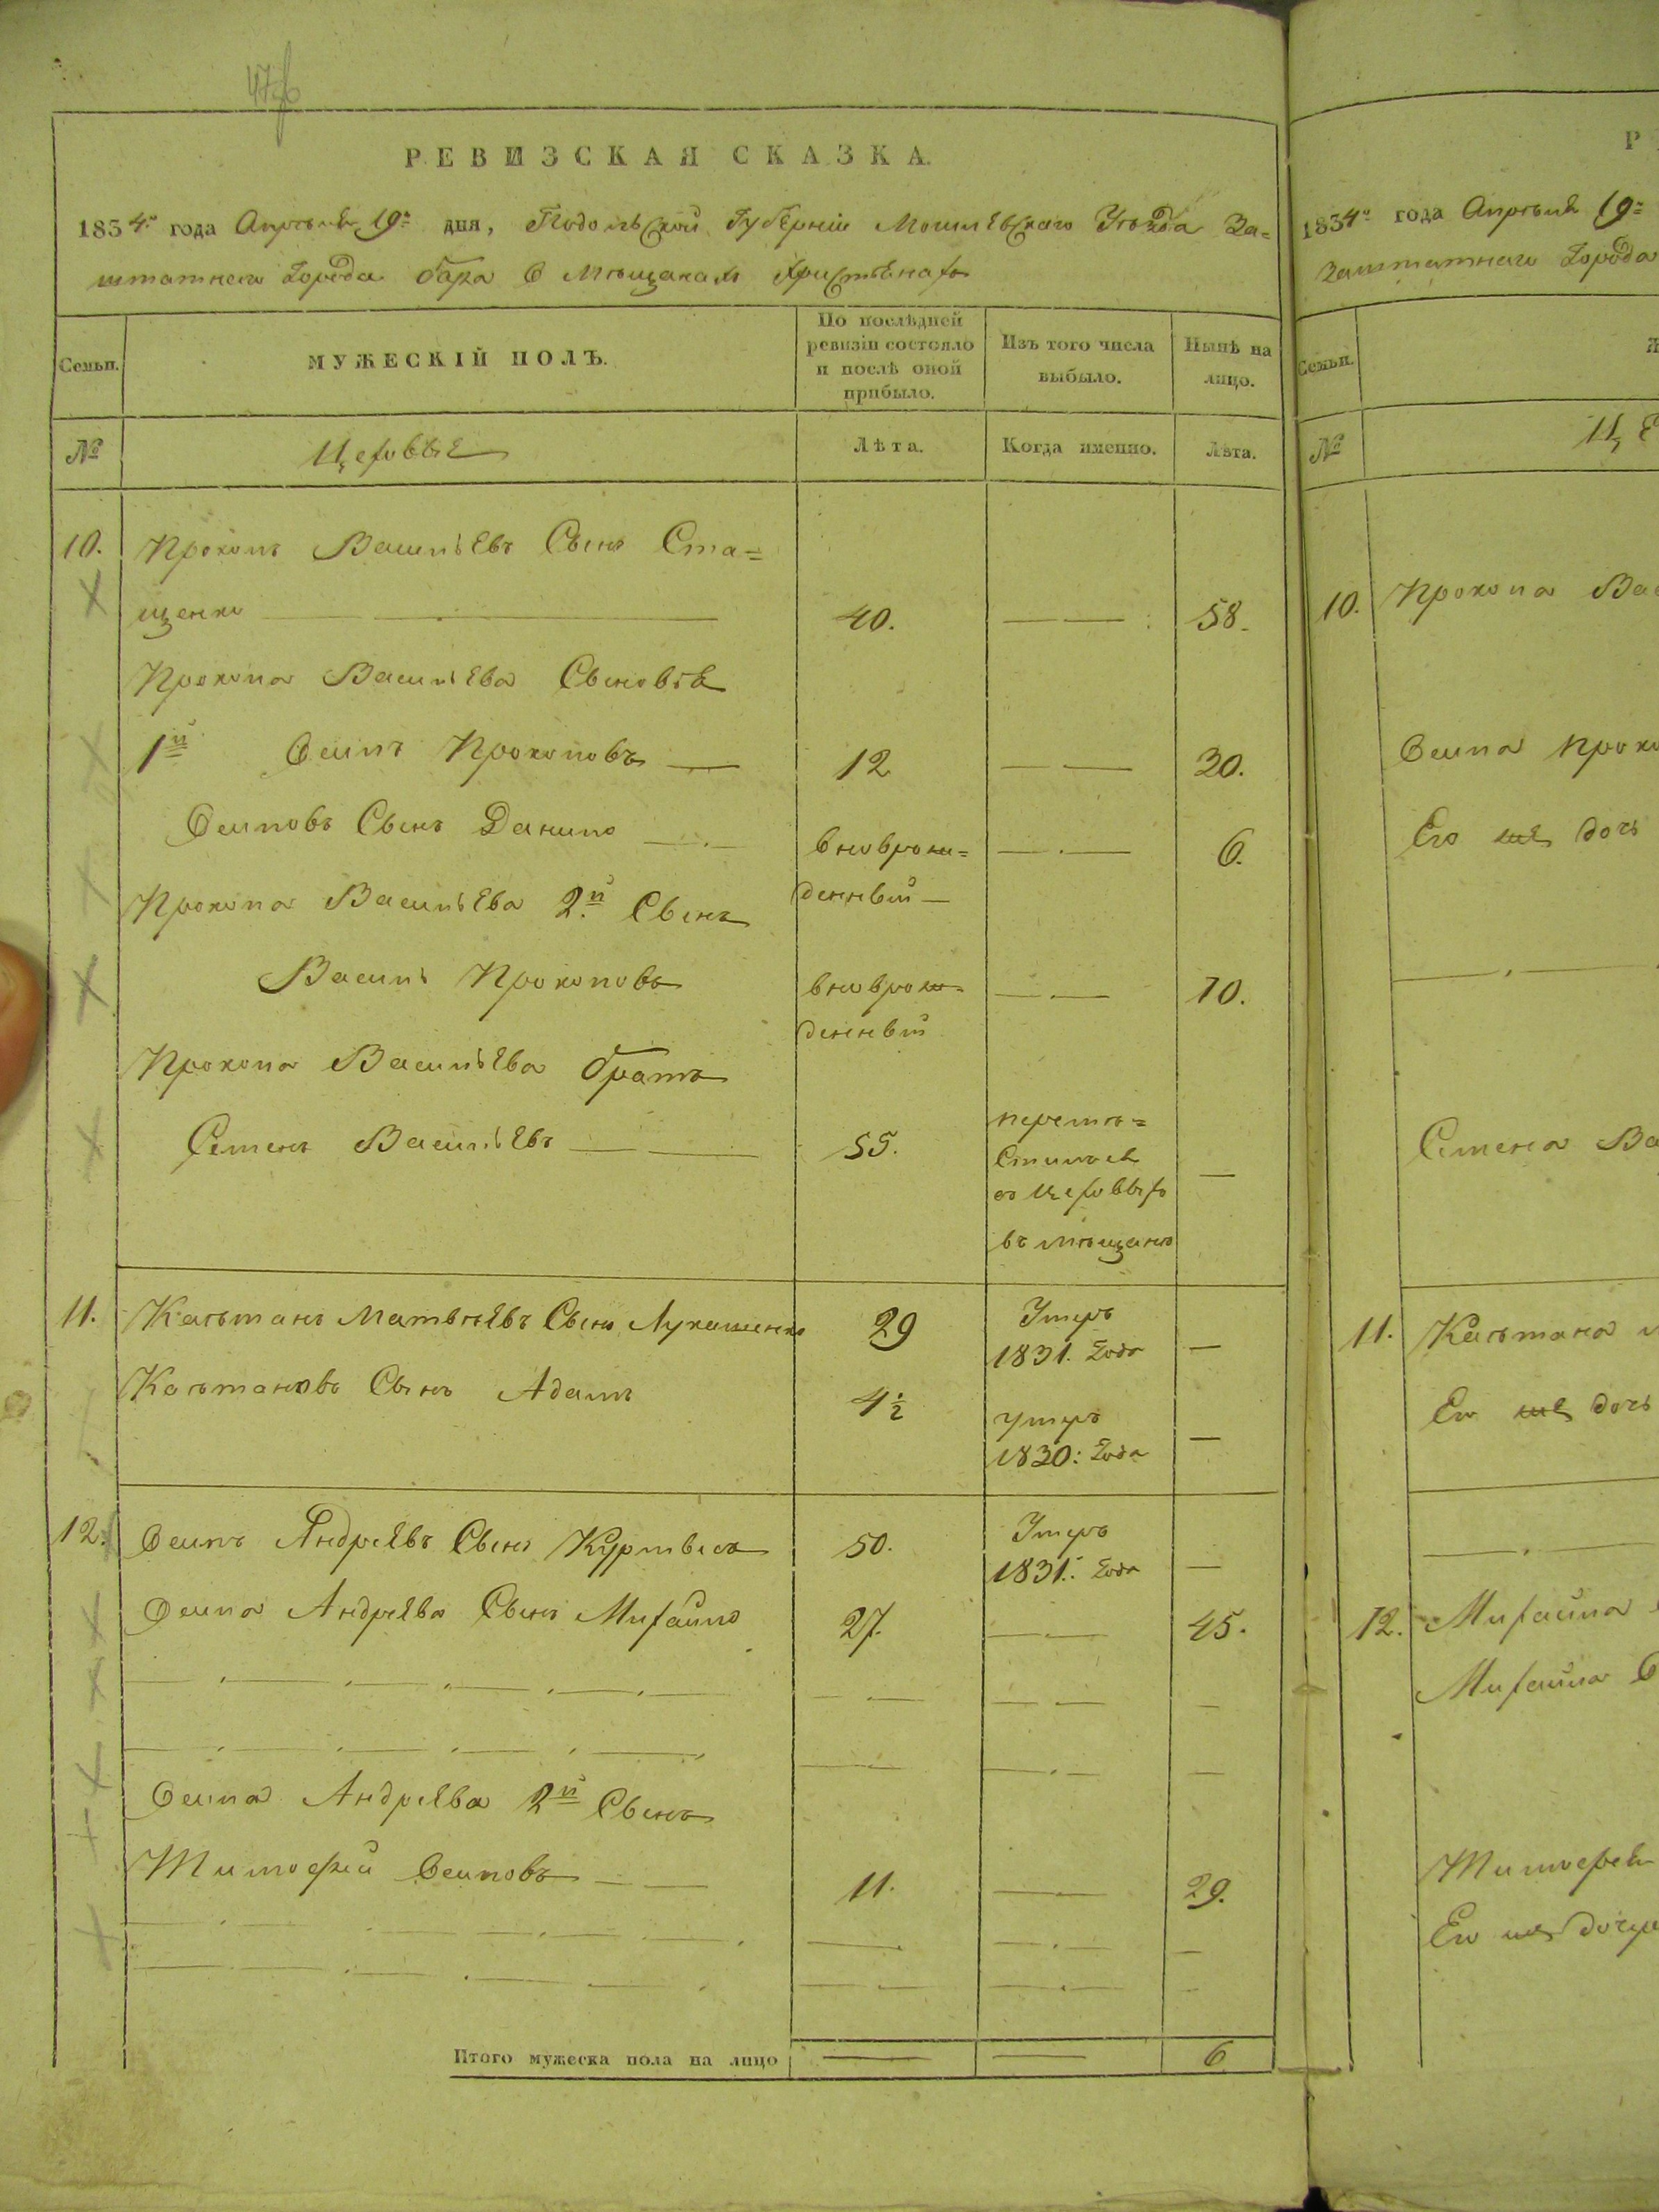 РЕВИЗСКАЯ СКАЗКА.
1834го года Апрѣля 19го дня, Подольской Губерніи Могилевскаго Уѣзда За=
штатнаго Города Бара о Мѣщанахъ Христіянахъ
Семьи.
МУЖЕСКІЙ ПОЛЪ.
По послѣдней ревизіи состояло и послѣ оной прибыло.
Изъ того числа выбыло.
Нынѣ на лицо.
№
Цеховые
Лѣта.
Когда именно.
Лѣта.
10. Прокопъ Васильевъ Сынъ Ста=
щенко 40. 58.
Прокопа Васильева Сыновья
1й Осипъ Прокоповъ 12 30.
Осиповъ Сынъ Данило вноврож=
денный 6.
Прокопа Васильева 2й Сынъ
Василь Прокоповъ вноврож=
денный 10.
Прокопа Васильева братъ
Семенъ Васильевъ 55. перемѣ=
стился
съ Цеховыхъ
въ мѣщане
11. Каэтанъ Матвѣевъ Сынъ Лукашенко 29 Умеръ
1831. Года
Каэтановъ Сынъ Адамъ 4½ умеръ
1830: Года
12. Осипъ Андреевъ Сынъ 50. Умеръ
1831. Года
Осипа Андреева Сынъ Михайло 27. 45.
Осипа Андреева 2й Сынъ
Тимофей Осиповъ 11. 29.
Итого мужеска пола на лицо 6
Р
1834го года Апрѣля 19го
Заштатнаго Города
Семьи.
№
10. Прокопа
Осипа
Его же дочь
Семена
11. Каэтана
Его же дочь
12. Михайла
Михайла
Тимофея
Его же